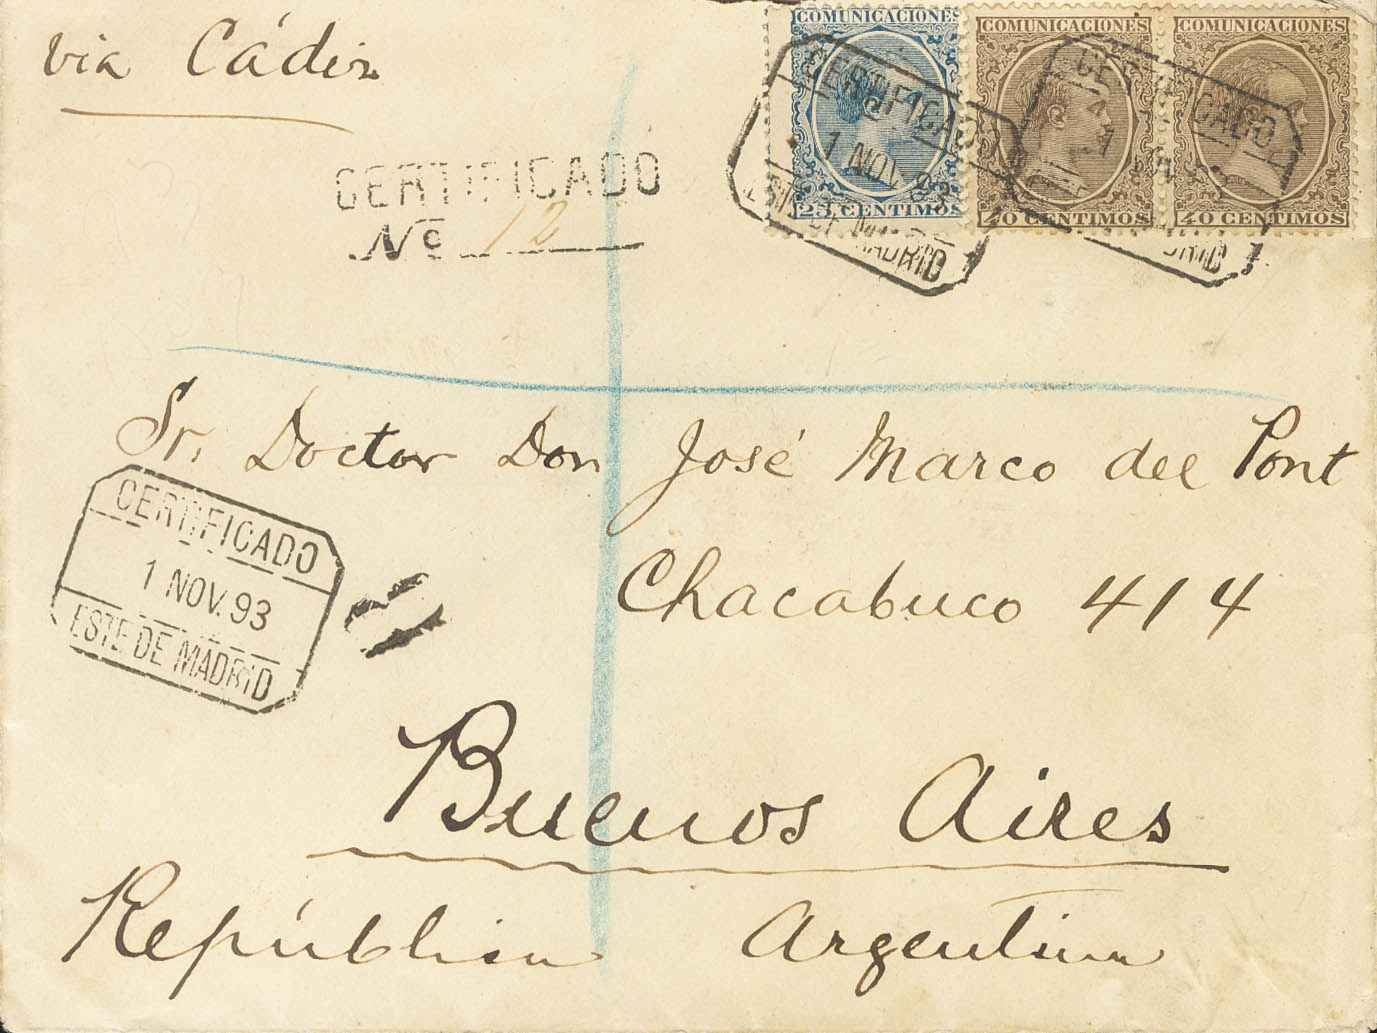 via Cádiz
COMUNICACIONES
25. CENTIMOS
COMUNICACIONES
40 CENTIMOS
COMUNICACIONES
40 CENTIMOS
CERTIFICADO
1 NOV. 93
ESTE DE MADRID
CERTIFICADO
1
DRID
CERTIFICADO
No 12
Sr. Doctor Don José Marco del Pont
CERTIFICADO
1 NOV. 93
ESTE DE MADRID
Chacabuco 414
Buenos Aires
República Argentina